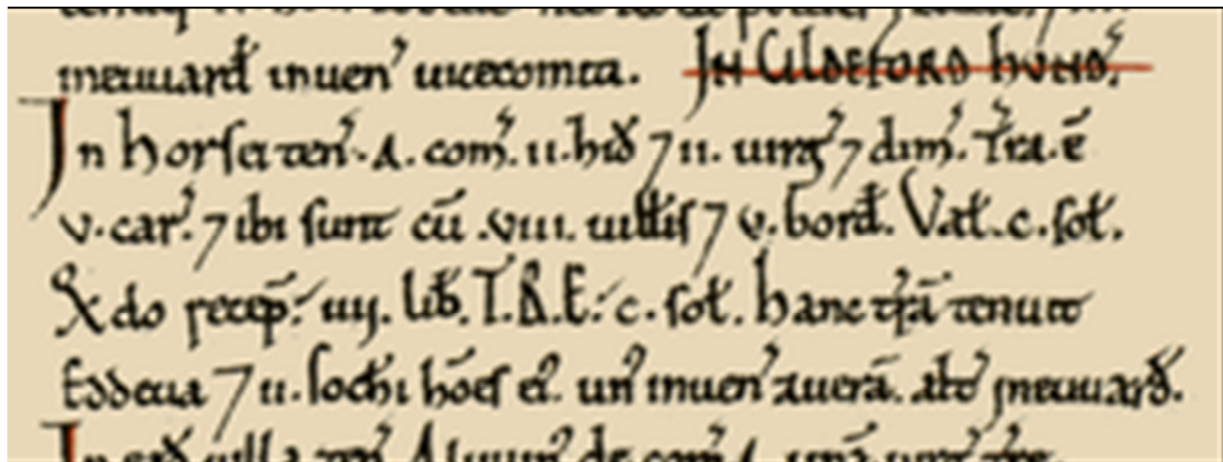 ineuuard inuen' uicecomiti. IN CILDEFORD HVND'.
In horsei ten'. A. com'. ii. hid 7 ii. uirg' 7 dim'. T'ra. ē
v. car'. 7 ibi sunt cū .viii. uillis 7 v. bord. Val. c. sol.
Q̃do recep̄. iiij. lib. T.R.E. c. sol. hanc t'rā tenuit
Eddeua 7 ii. sochi hōes ei'. un' inuen' auerā. alt' ineuuard.